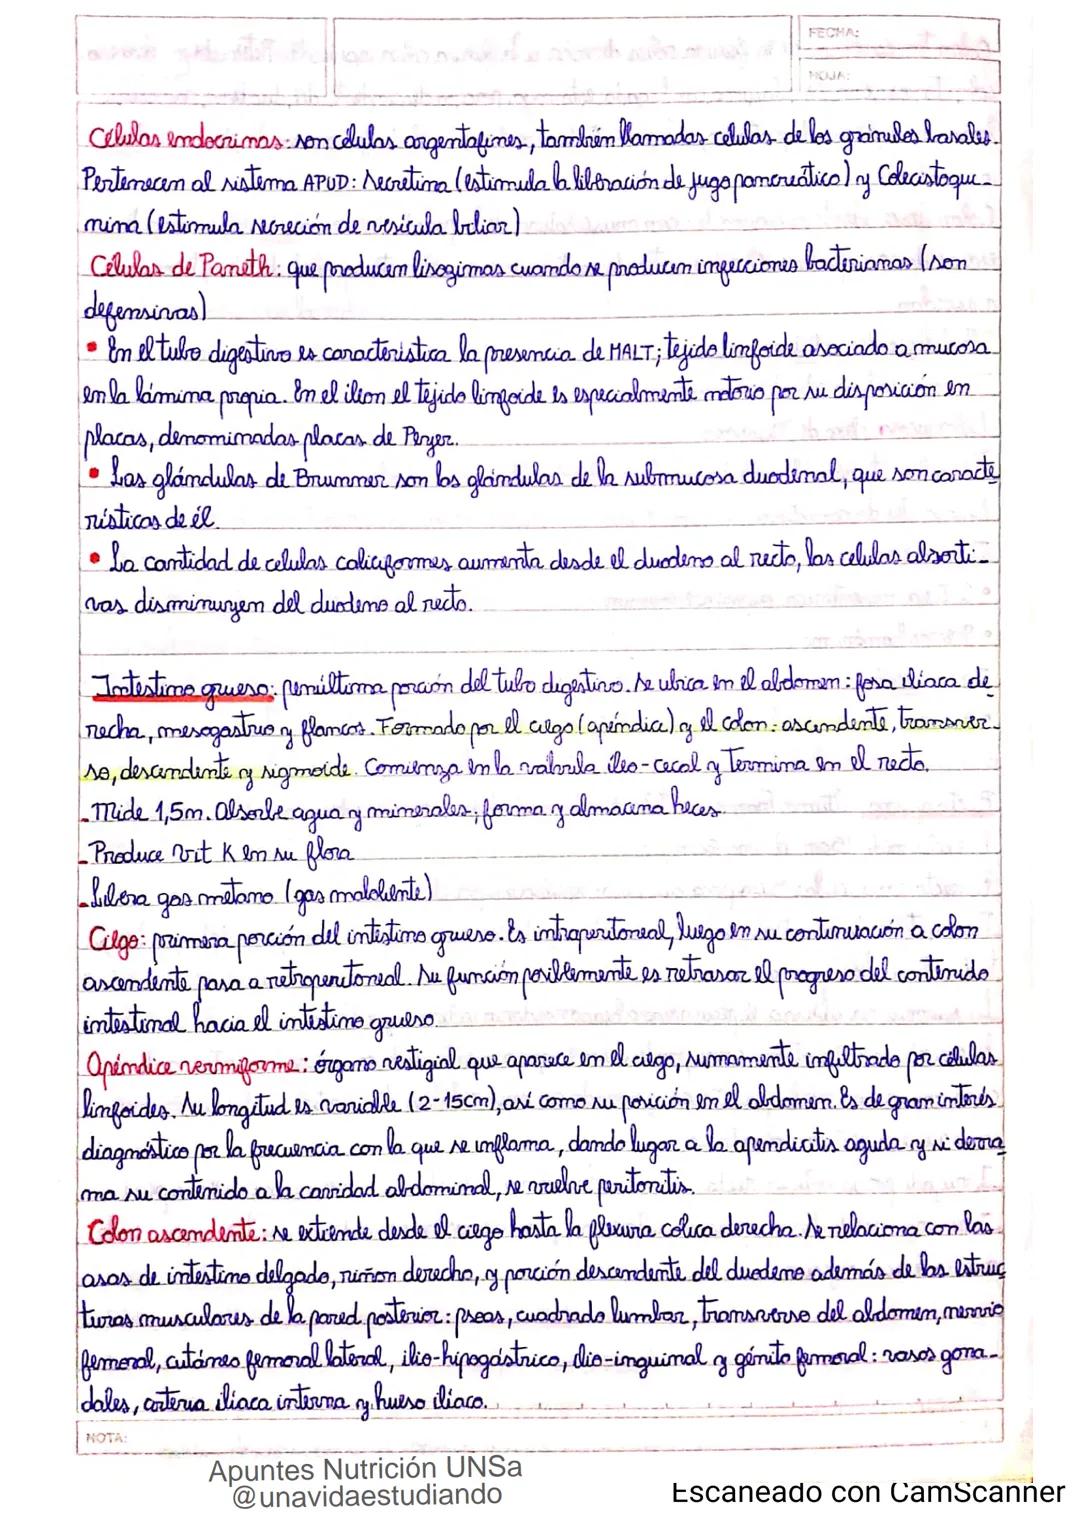 FECHA:
HOJA:
Células endocrinas: son células argentafines, también llamadas celulas de los gránulos basales.
Pertenecen al sistema APUD: Secretina (estimula la liberación de jugo pancreático) y Colecistoqui-
nina (estimula secreción de vesícula biliar)
Células de Paneth: que producen lisozimas cuando se producen infecciones bacterianas (son
defensivas)
• En el tubo digestivo es característica la presencia de MALT; tejido linfoide asociado a mucosa
en la lámina propia. En el ilion el tejido linfoide es especialmente notorio por su disposición en
placas, denominadas placas de Peyer.
• Las glándulas de Brunner son las glándulas de la submucosa duodenal, que son caracte
rísticas de él.
• La cantidad de celulas caliciformes aumenta desde el duodeno al recto, las celulas absorti-
vas disminuyen del duodeno al recto.
Intestino grueso: penúltima porción del tubo digestivo. Se ubica en el abdomen: fosa iliaca de
recha, mesogastrio y flancos. Formado por el ciego (apéndice) y el colon: ascendente, transver-
so, descendente y sigmoide. Comienza en la válvula íleo-cecal y Termina en el recto.
- Mide 1,5m. Absorbe agua y minerales; forma y almacena heces.
- Produce Vit K en su flora
- Libera gas metano (gas maloliente)
Ciego: primera porción del intestino grueso. Es intraperitoneal, luego en su continuación a colon
ascendente pasa a retroperitoneal. Su función posiblemente es retrasar el progreso del contenido
intestinal hacia el intestino grueso.
Apéndice vermiforme: órgano vestigial que aparece en el ciego, sumamente infiltrado por células
linfoides. Su longitud es variable (2-15cm), así como su posición en el abdomen. Es de gran interés
diagnóstico por la frecuencia con la que se inflama, dando lugar a la apendicitis aguda y si derra
ma su contenido a la cavidad abdominal, se vuelve peritonitis.
Colon ascendente: se extiende desde el ciego hasta la flexura cólica derecha. Se relaciona con las
asas de intestino delgado, riñon derecho, y porción descendente del duodeno además de las estruc
turas musculares de la pared posterior: psoas, cuadrado lumbar, transverso del abdomen, nervio
femoral, cutáneo femoral lateral, ilio-hipogástrico, ilio-inguinal y génito femoral: vasos gona-
dales, arteria iliaca interna y hueso ilíaco.
NOTA:
Apuntes Nutrición UNSa
@unavidaestudiando
Escaneado con CamScanner